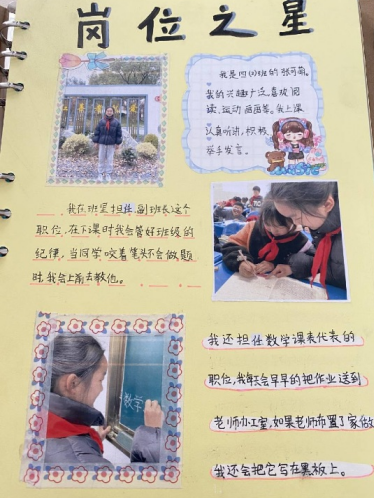 岗位之星
我是四(1)班的张可萌。
我的兴趣广泛,喜欢阅
读、运动、画画等。我上课
认真听讲,积极
举手发言。
我在班里担任副班长这个
职位,在下课时我会管好班级的
纪律,当同学咬着笔头不会做题
时,我会上前去教他。
我还担任数学课代表的
职位,我每天会早早的把作业送到
老师办工室,如果老师布置了家做
我还会把它写在黑板上。
数学